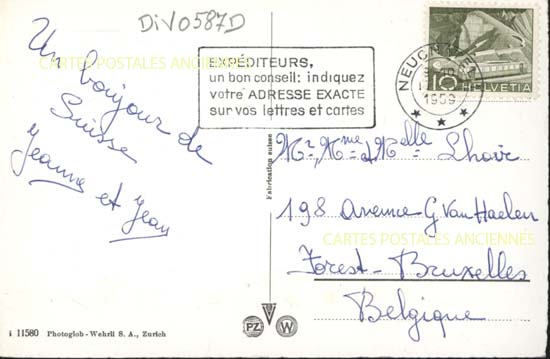 DiV0587D
Un bonjour de
Suisse
Jeanne et Jean
EXPÉDITEURS,
un bon conseil: indiquez
votre ADRESSE EXACTE
sur vos lettres et cartes
NEUCH
1959
10 HELVETIA
CARTES POSTALES ANCIENNES
Fabrication suisse
Mr, Mme & Melle
198 Avenue G. Van Haelen
CARTES POSTALES ANCIENNES
Forest - Bruxelles
Belgique
i 11580 Photoglob-Wehrli S. A., Zurich
PZ W